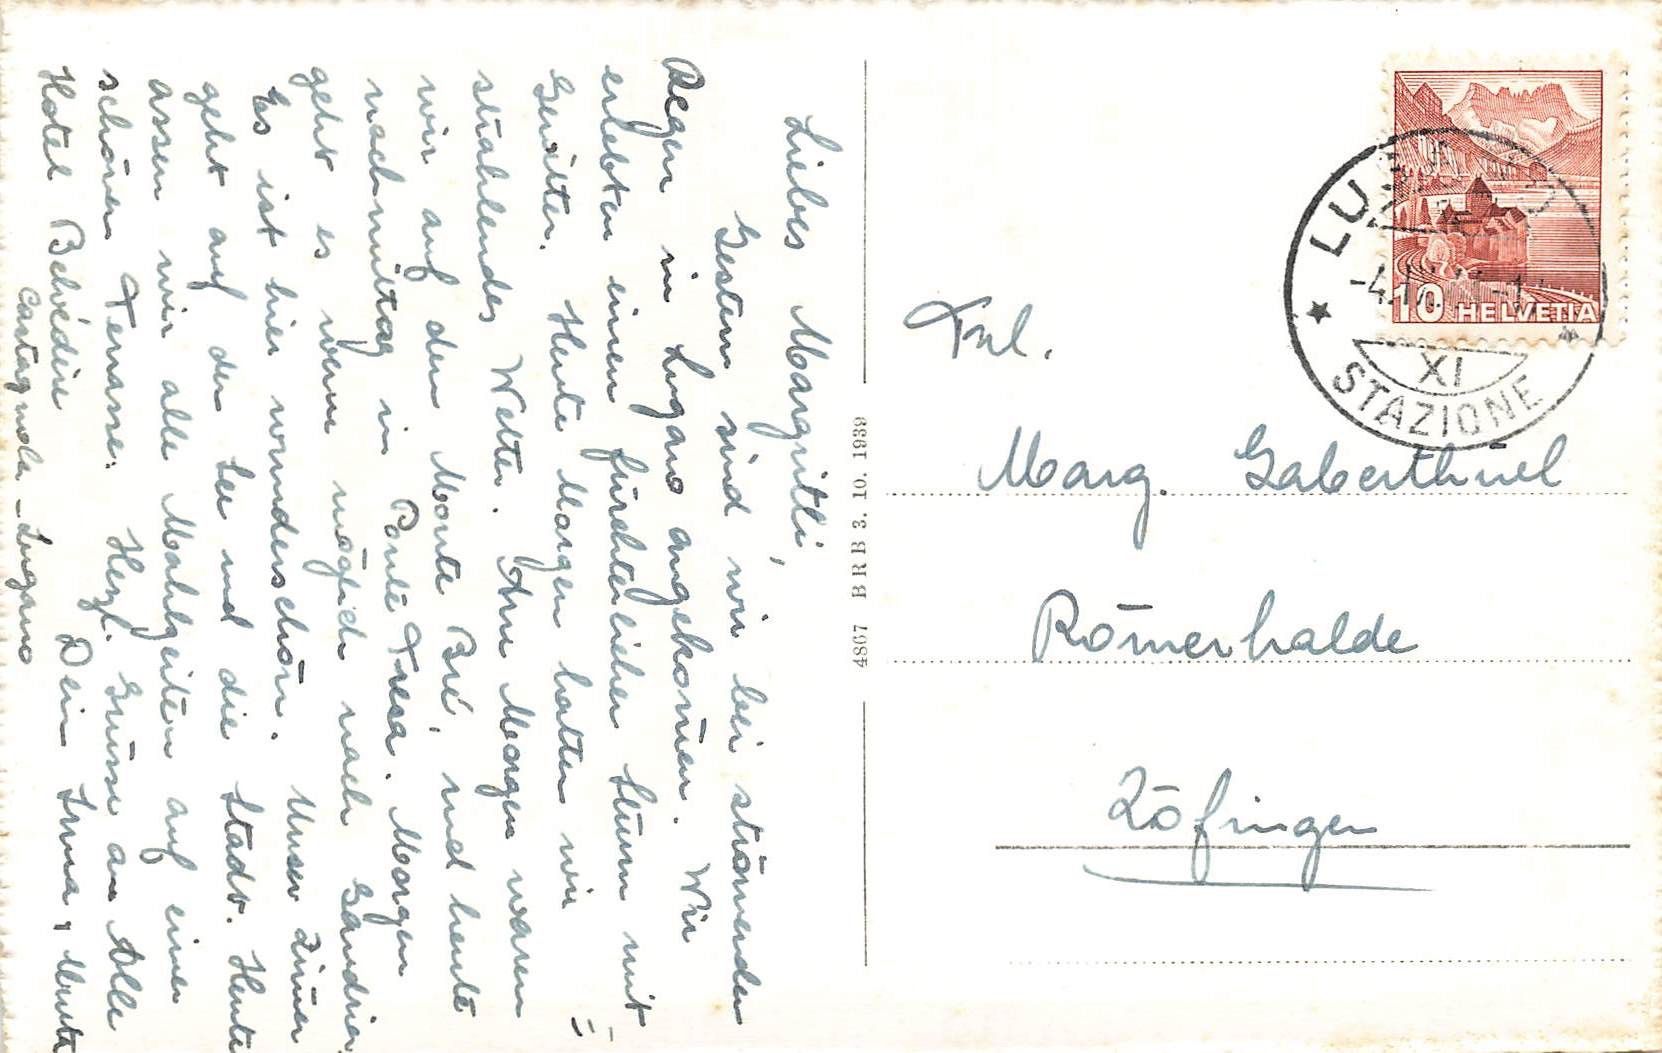 Liebes Margritli,
Gestern sind wir bei strömenden
Regen in Lugano angekom̄en. Wir
erlebten einen fürchterlichen Sturm mit
Gewitter. Heute Morgen hatten wir
strahlendes Wetter. Am Morgen waren
wir auf dem Monte Brè, und heute
nachmittag in Ponte Tresa. Morgen
geht es wenn möglich nach Gandria.
Es ist hier wunderschön. Unser Zim̄er
geht auf den See und die Stadt. Heute
assen wir alle Mahlzeiten auf einer
schönen Terrasse. Herzl. Grüsse an Alle
Dein
Hotel Belvédère
Castagnola-Lugano
4867 B R B 3. 10. 1939
Frl.
Marg. Gaberthüel
Römerhalde
Zofingen
10 HELVETIA
LUGANO
XI
STAZIONE